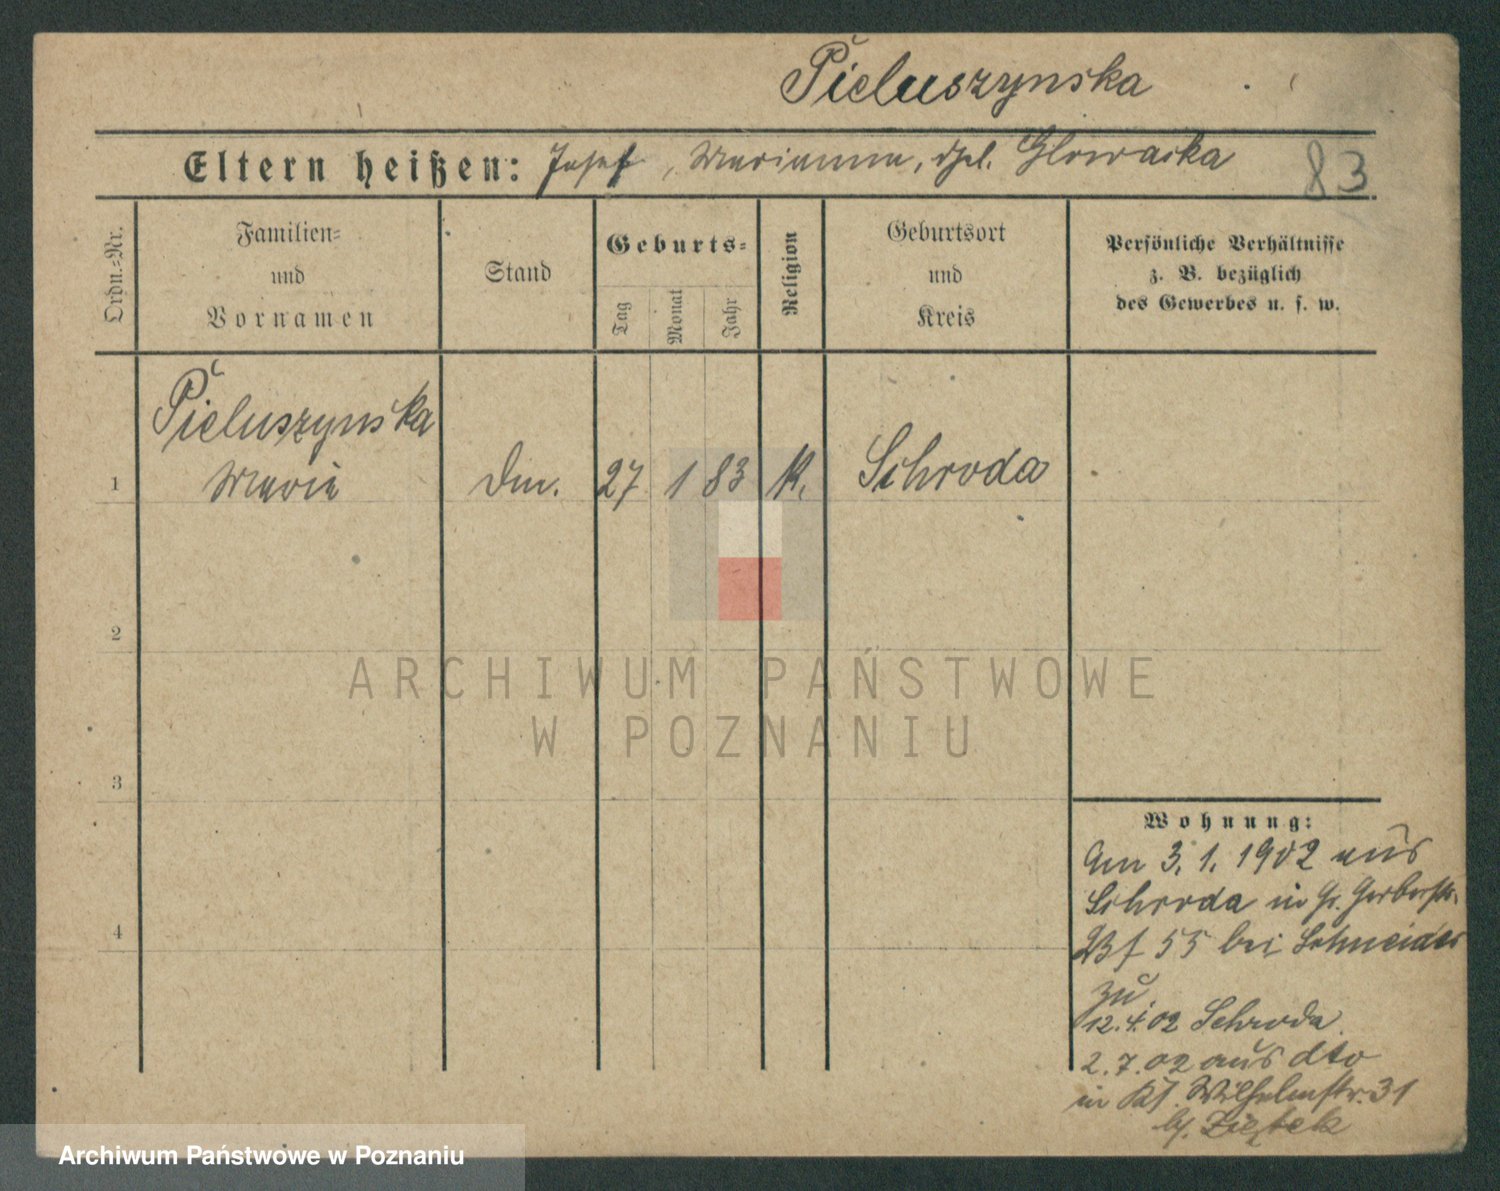 Pieluszynska
Eltern heißen: Josef, Marianna, geb. Glowacka
83
Ordn.=Nr.
Familien=
und
Vornamen
Stand
Geburts=
Tag
Monat
Jahr
Religion
Geburtsort
und
Kreis
Persönliche Verhältnisse
z. B. bezüglich
des Gewerbes u. s. w.
Pieluszynska
1 Maria 27 1 83 K. Schroda
2
3
4
Wohnung:
Am 3. 1. 1902 aus
Schroda in Gr. Gerberstr.
55 bei Schneider
zu.
12.4.02 Schroda
2.7.02 aus dto
in Kl. Wilhelmstr. 31
b/. Ziętek
ARCHIWUM PAŃSTWOWE
W POZNANIU
Archiwum Państwowe w Poznaniu